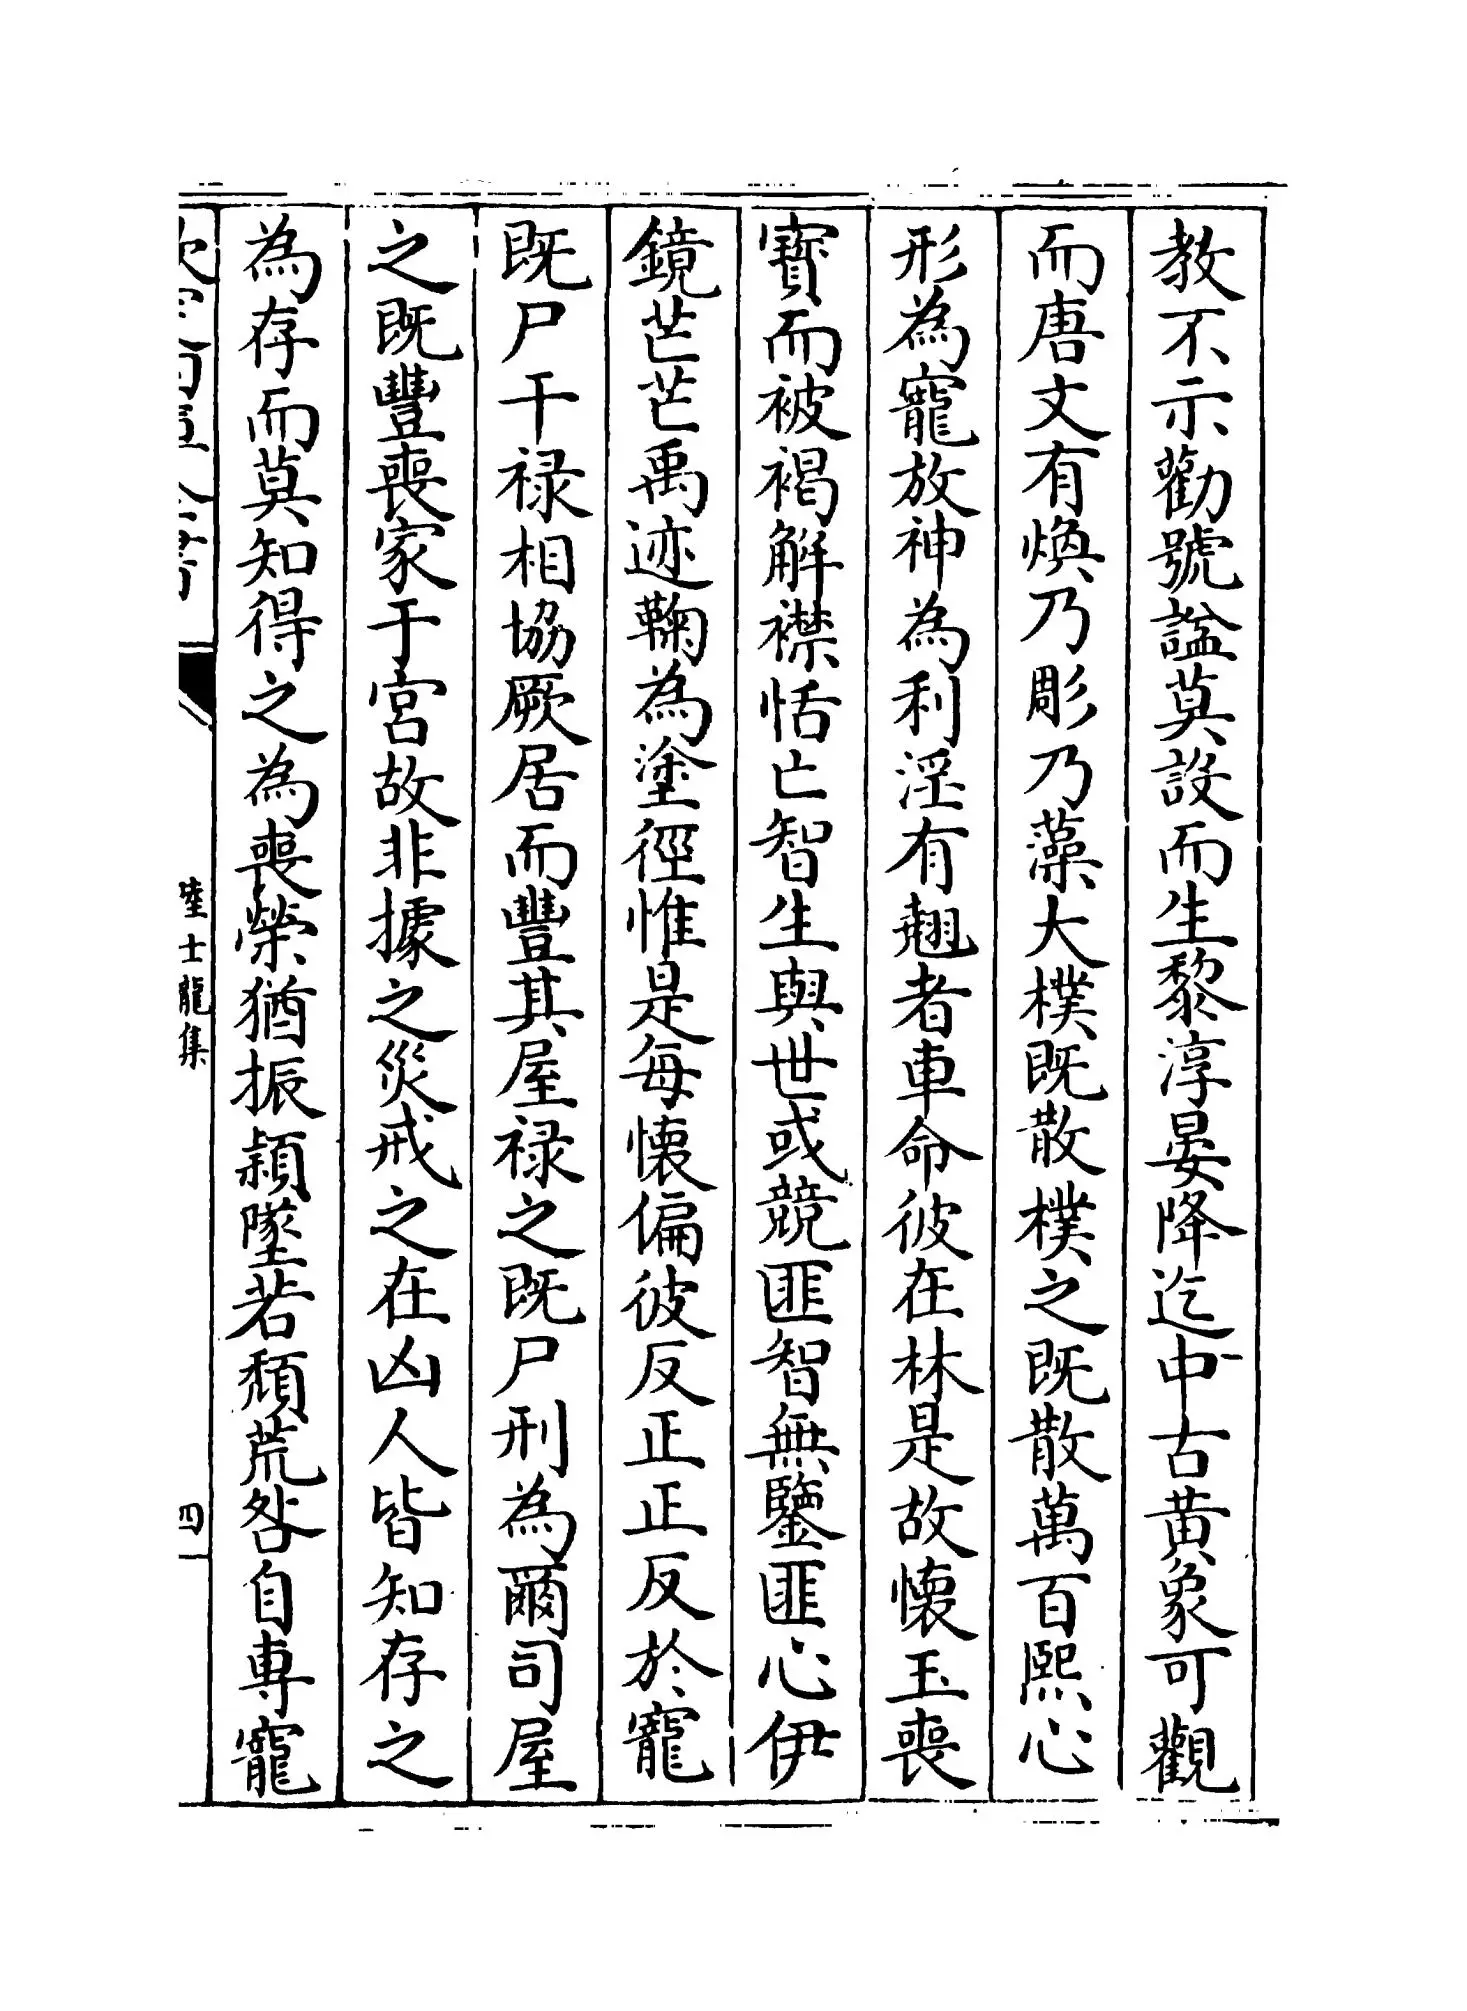 教不示勸號諡莫設而生黎淳晏降迄中古黄象可觀
而唐文有煥乃彫乃藻大樸既散樸之既散萬百熙心
形為寵放神為利淫有翹者車命彼在林是故懷玉喪
寳而被褐解襟恬亡智生與世或競匪智無鑒匪心伊
鏡芒芒禹迹鞠為塗徑惟是每懷偏彼反正正反於寵
既尸干禄相協厥居而豐其屋禄之既尸刑為爾司屋
之既豐喪家于宫故非據之災戒之在凶人皆知存之
為存而莫知得之為喪榮猶振穎墜若頽荒咎自專寵
陸士龍集
四